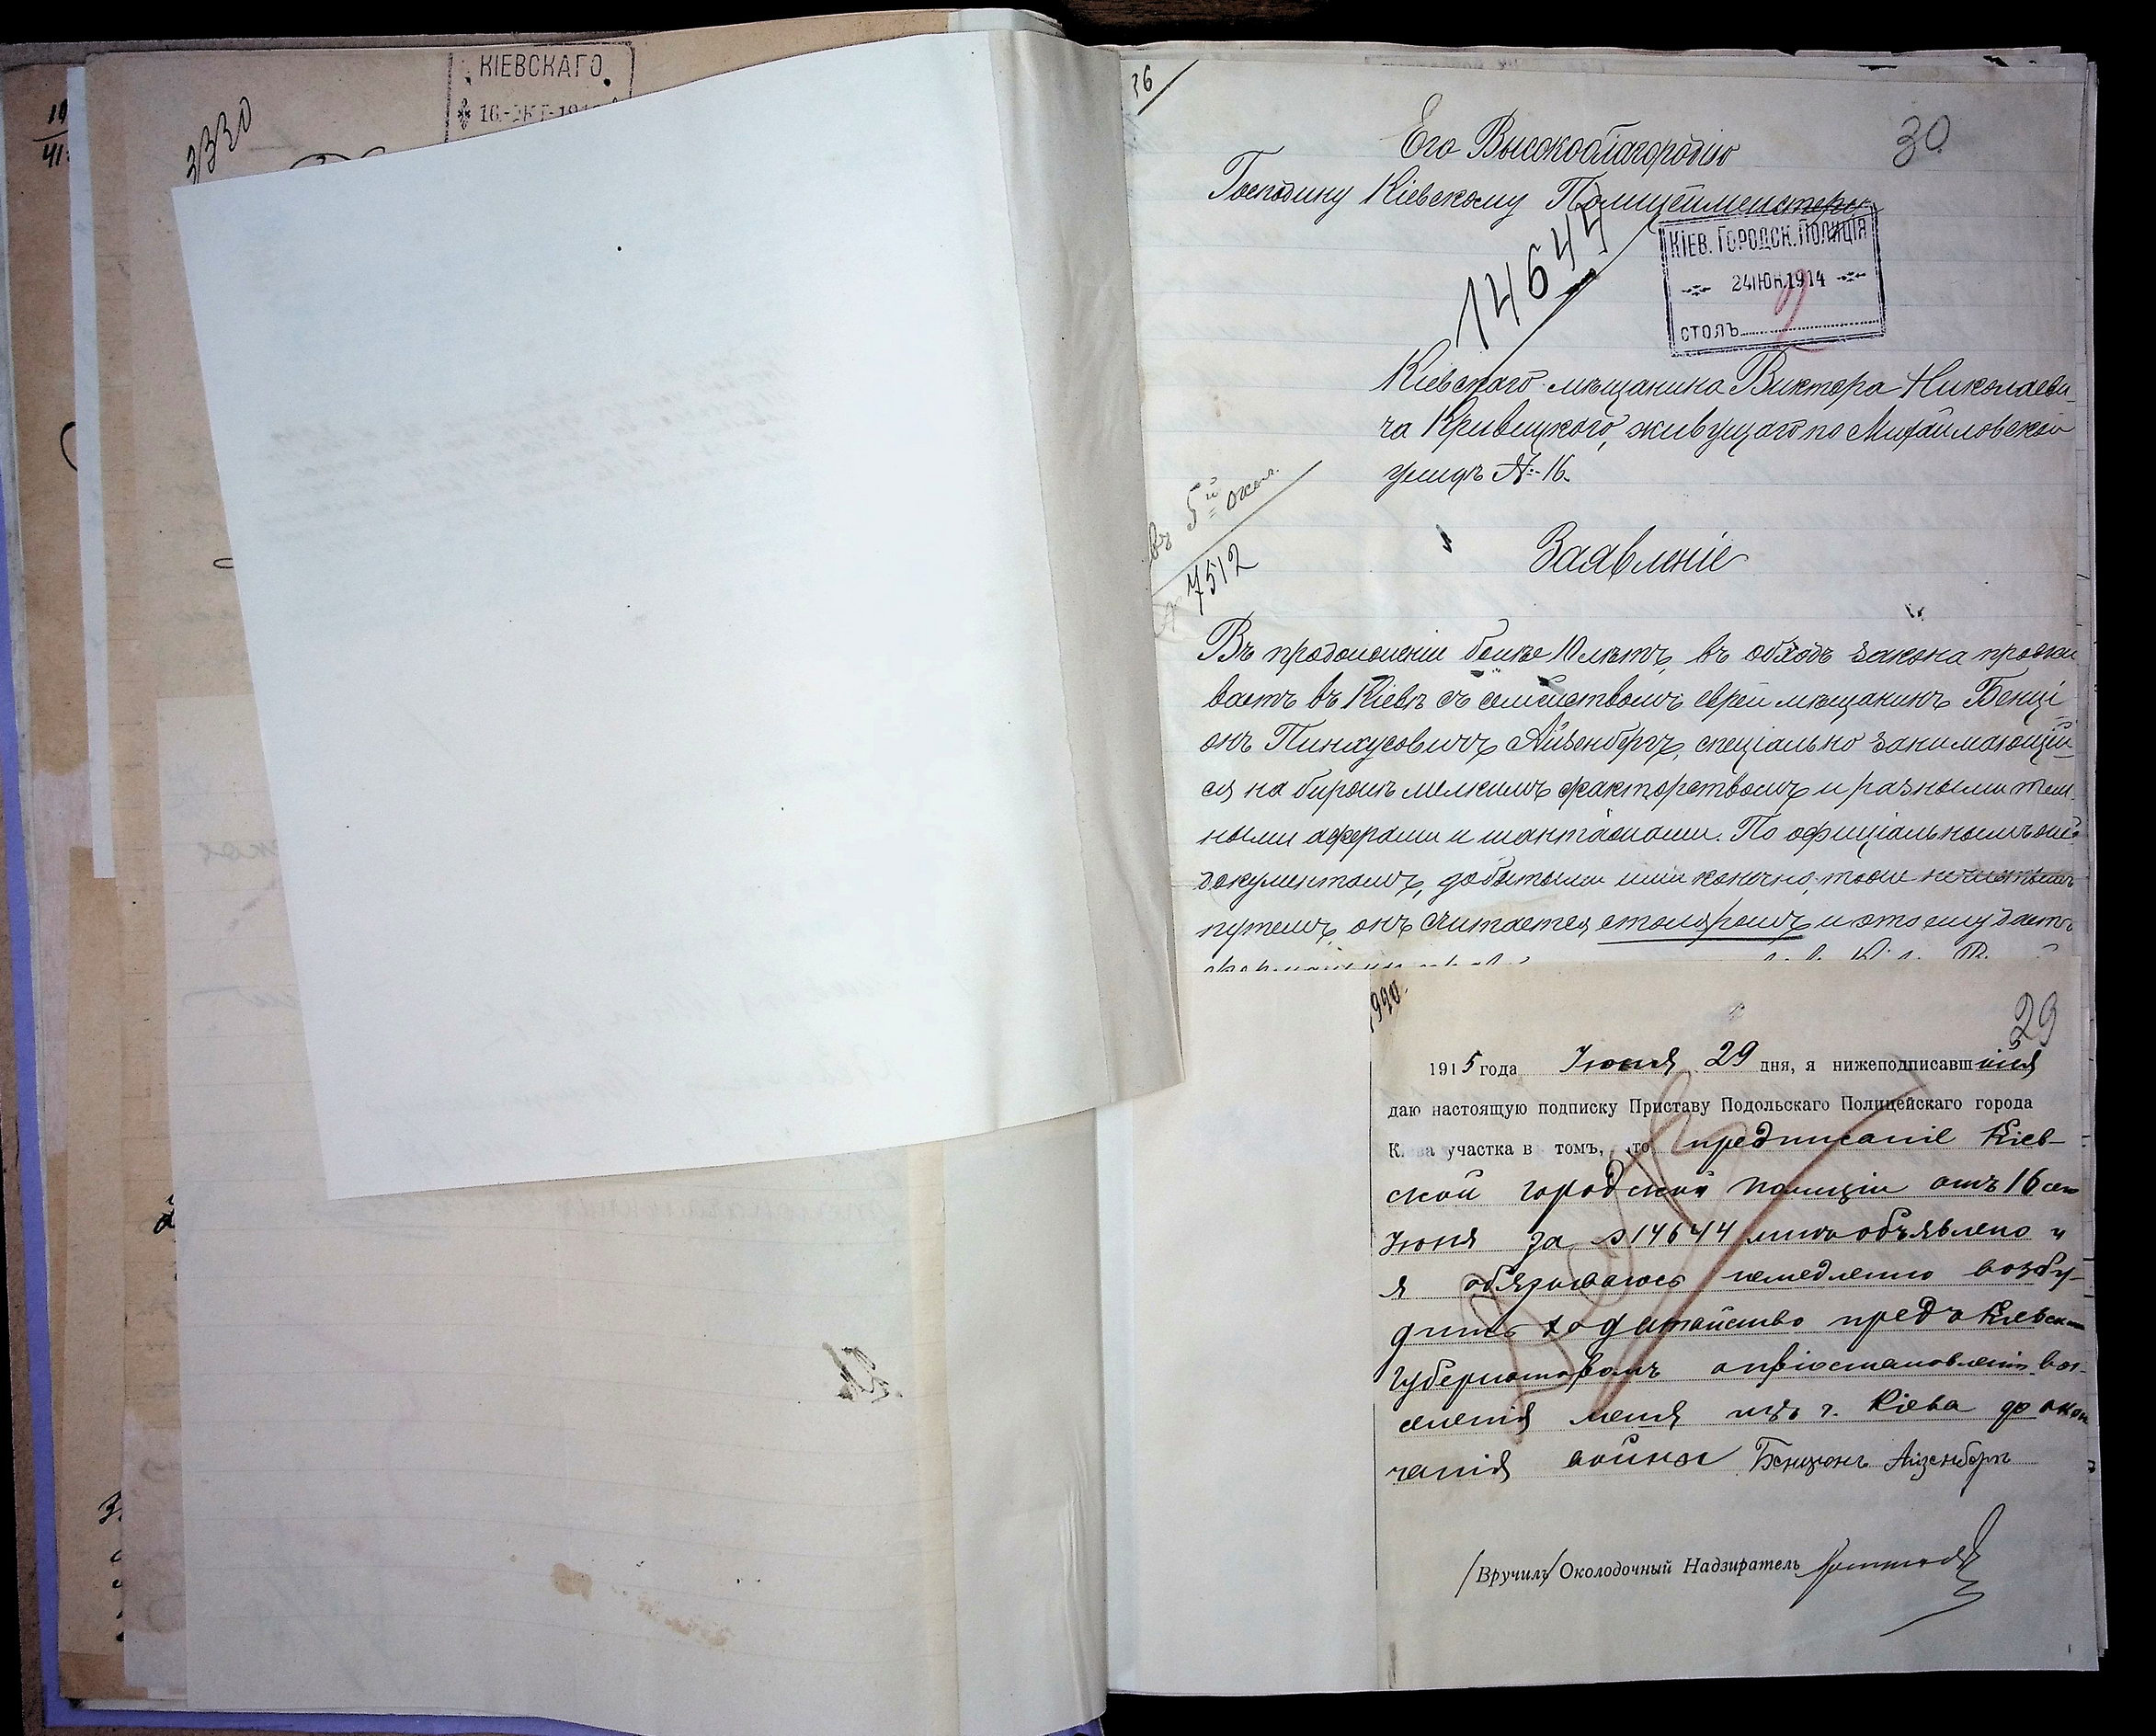 КІЕВСКАГО
16.-ОКТ-191
3330
36
30
Его Высокоблагородію
Господину Кіевскому Полицеймейстеру
14644
КІЕВ. ГОРОДСК. ПОЛИЦІЯ
24 ІЮН. 1914
СТОЛЪ
Кіевскаго мѣщанина Виктора Николаеви-
ча Кривицкого, живущаго по Михайловской
улицѣ №-16.
въ 5й
7512
Заявленіе
Въ продолженіи болѣе 10 лѣтъ, въ обходъ закона прожи
ваетъ въ Кіевѣ съ семействомъ еврей мѣщанинъ Бенці-
онъ Пинхусовичъ Айзенбергъ, спеціально занимающій-
ся на биржѣ мелкимъ факторствомъ и разными тем-
ными аферами и шантажами. По официальнымъ
документамъ, добытыми имъ конечно, тоже нечистымъ
путемъ, онъ считается столяромъ и это ему даетъ
29
1915 года Іюня 29 дня, я нижеподписавшійся
даю настоящую подписку Приставу Подольскаго Полицейскаго города
К ва участка в томъ, то предписаніе Кіев-
ской городской полиціи отъ 16 сего
Іюня за №14644 мнѣ объявлено и
я обязываюсь немедленно возбу-
дить ходатайство предъ Кіевскимъ
Губернаторомъ о пріостановленіи вы-
селенія меня изъ г. Кіева до окон
чанія войны Бенціонъ Айзенбергъ
/Вручилъ/ Околодочный Надзиратель